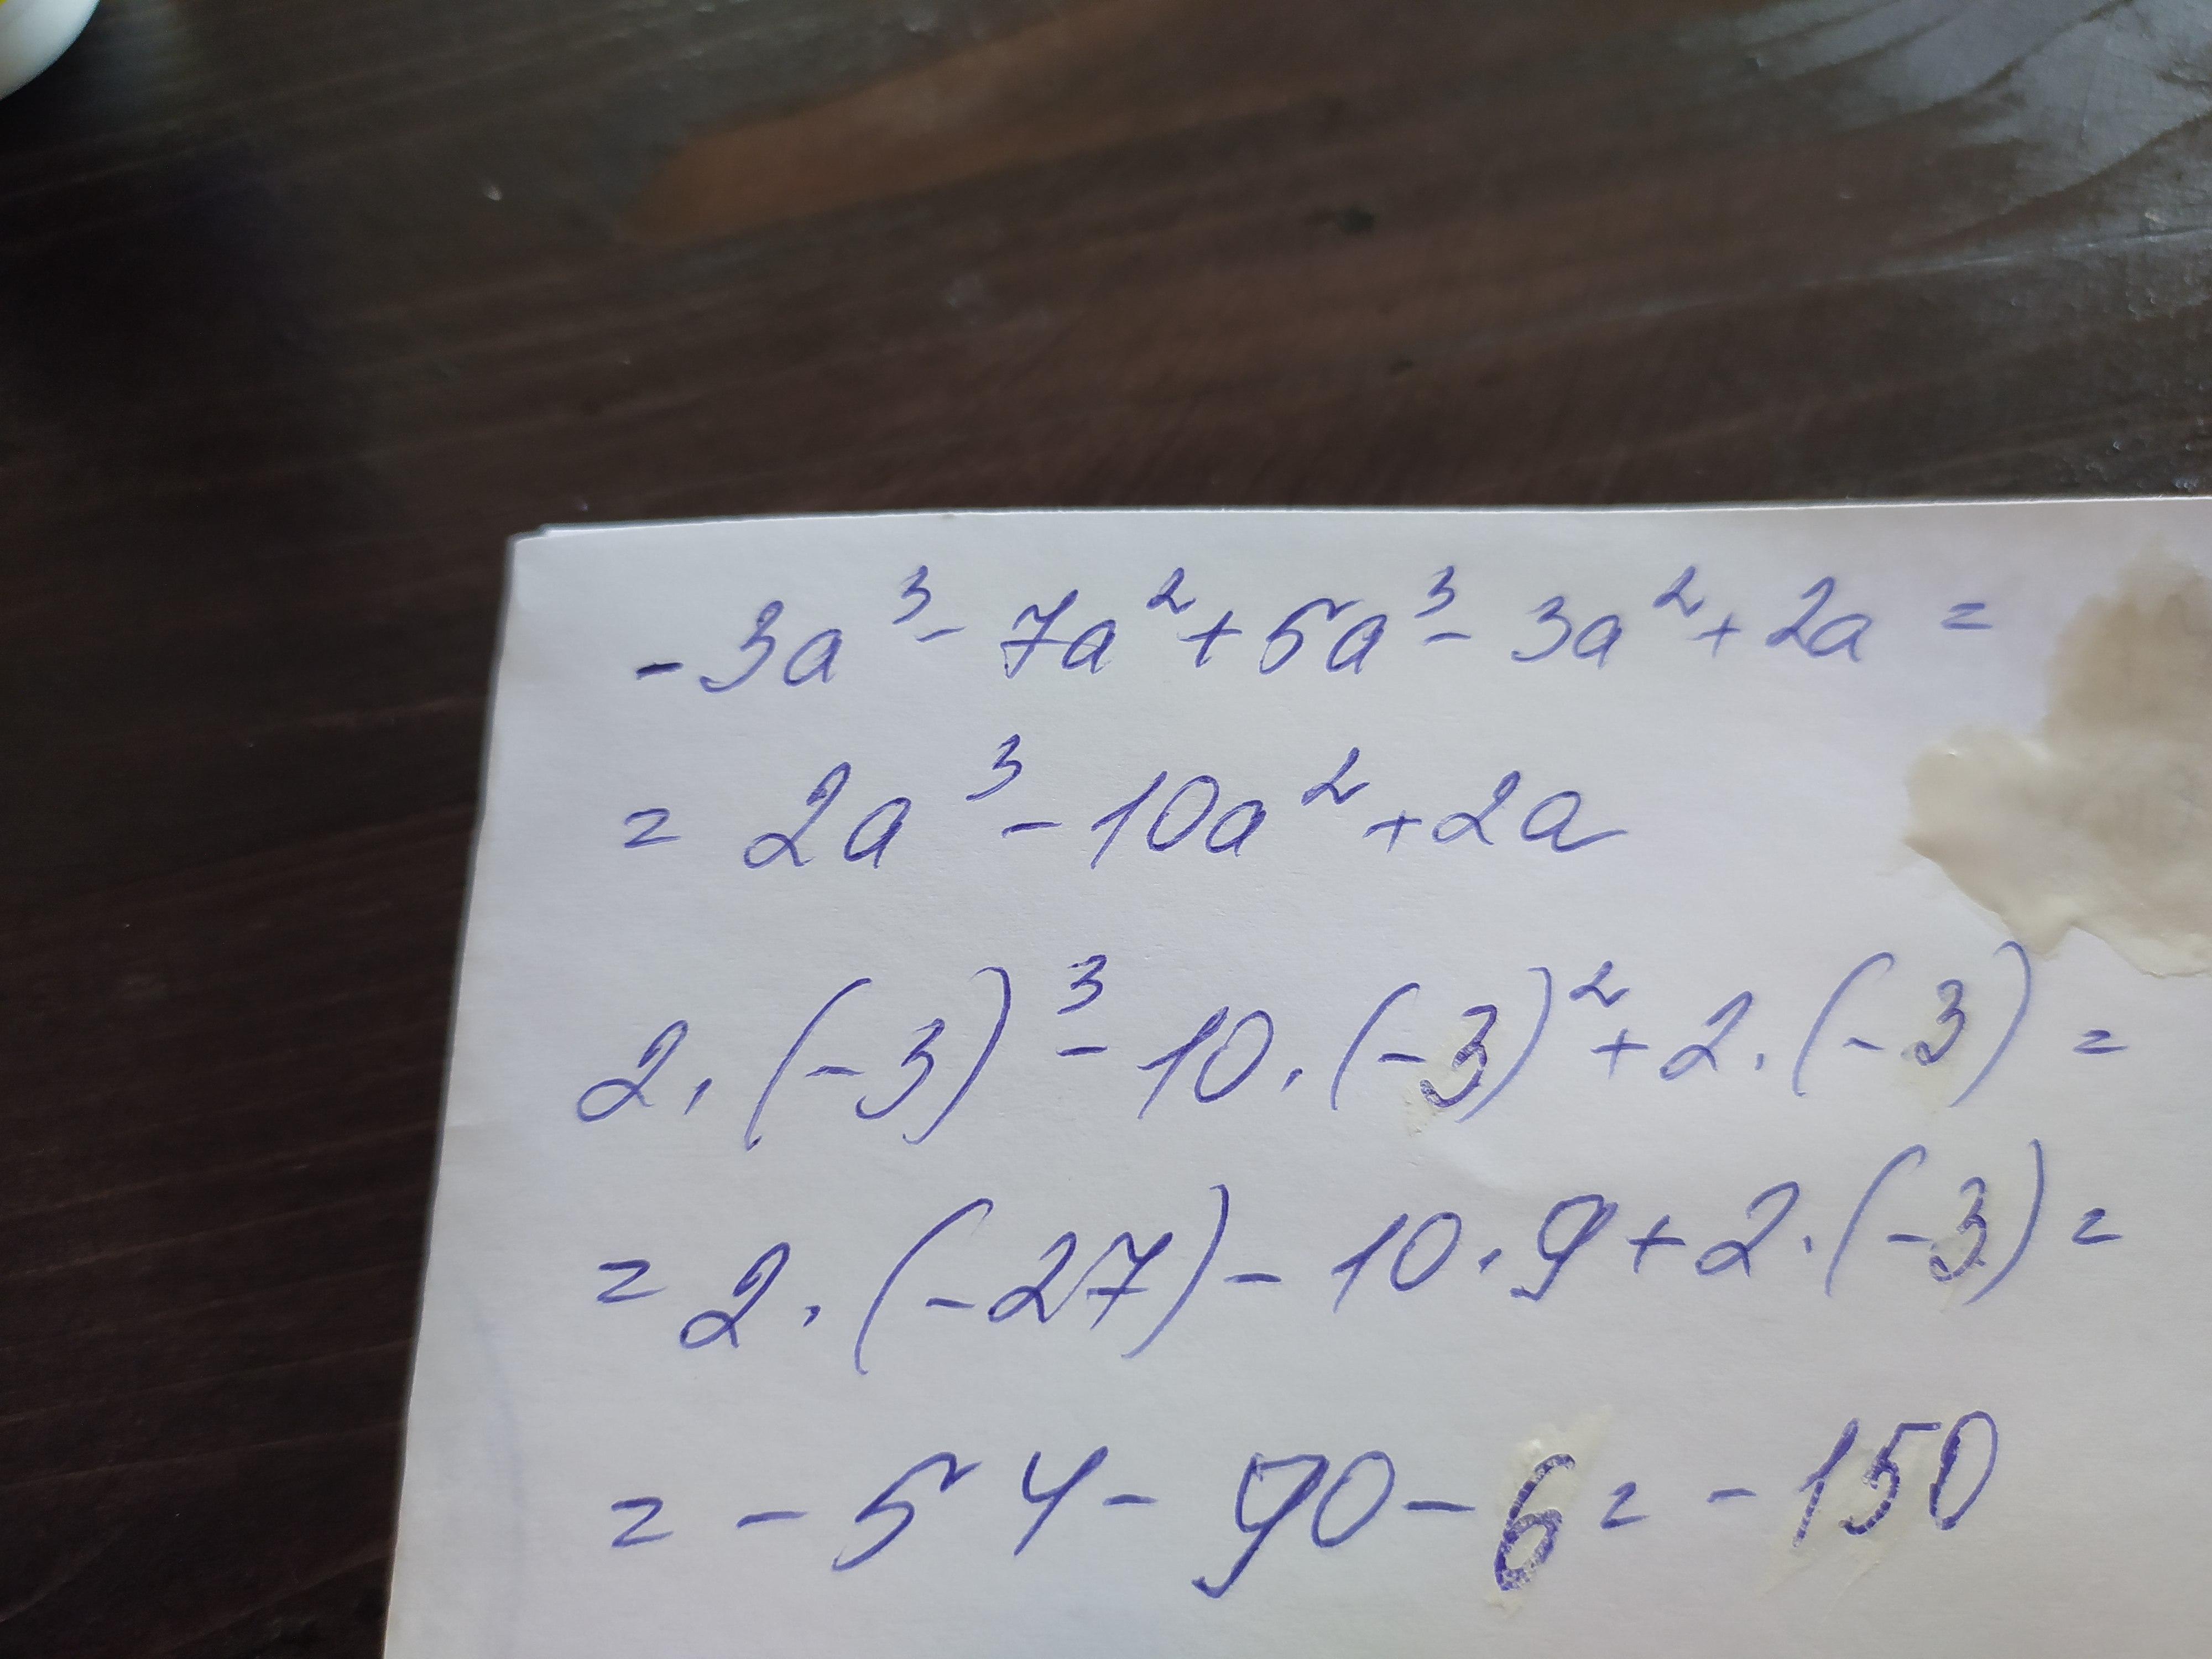 -3a³- 7a²+5a³- 3a²+2a =
= 2a³-10a²+2a
2·(-3)³-10·(-3)²+2·(-3)=
=2·(-27)-10·9+2·(-3)=
=-54-90-6=-150